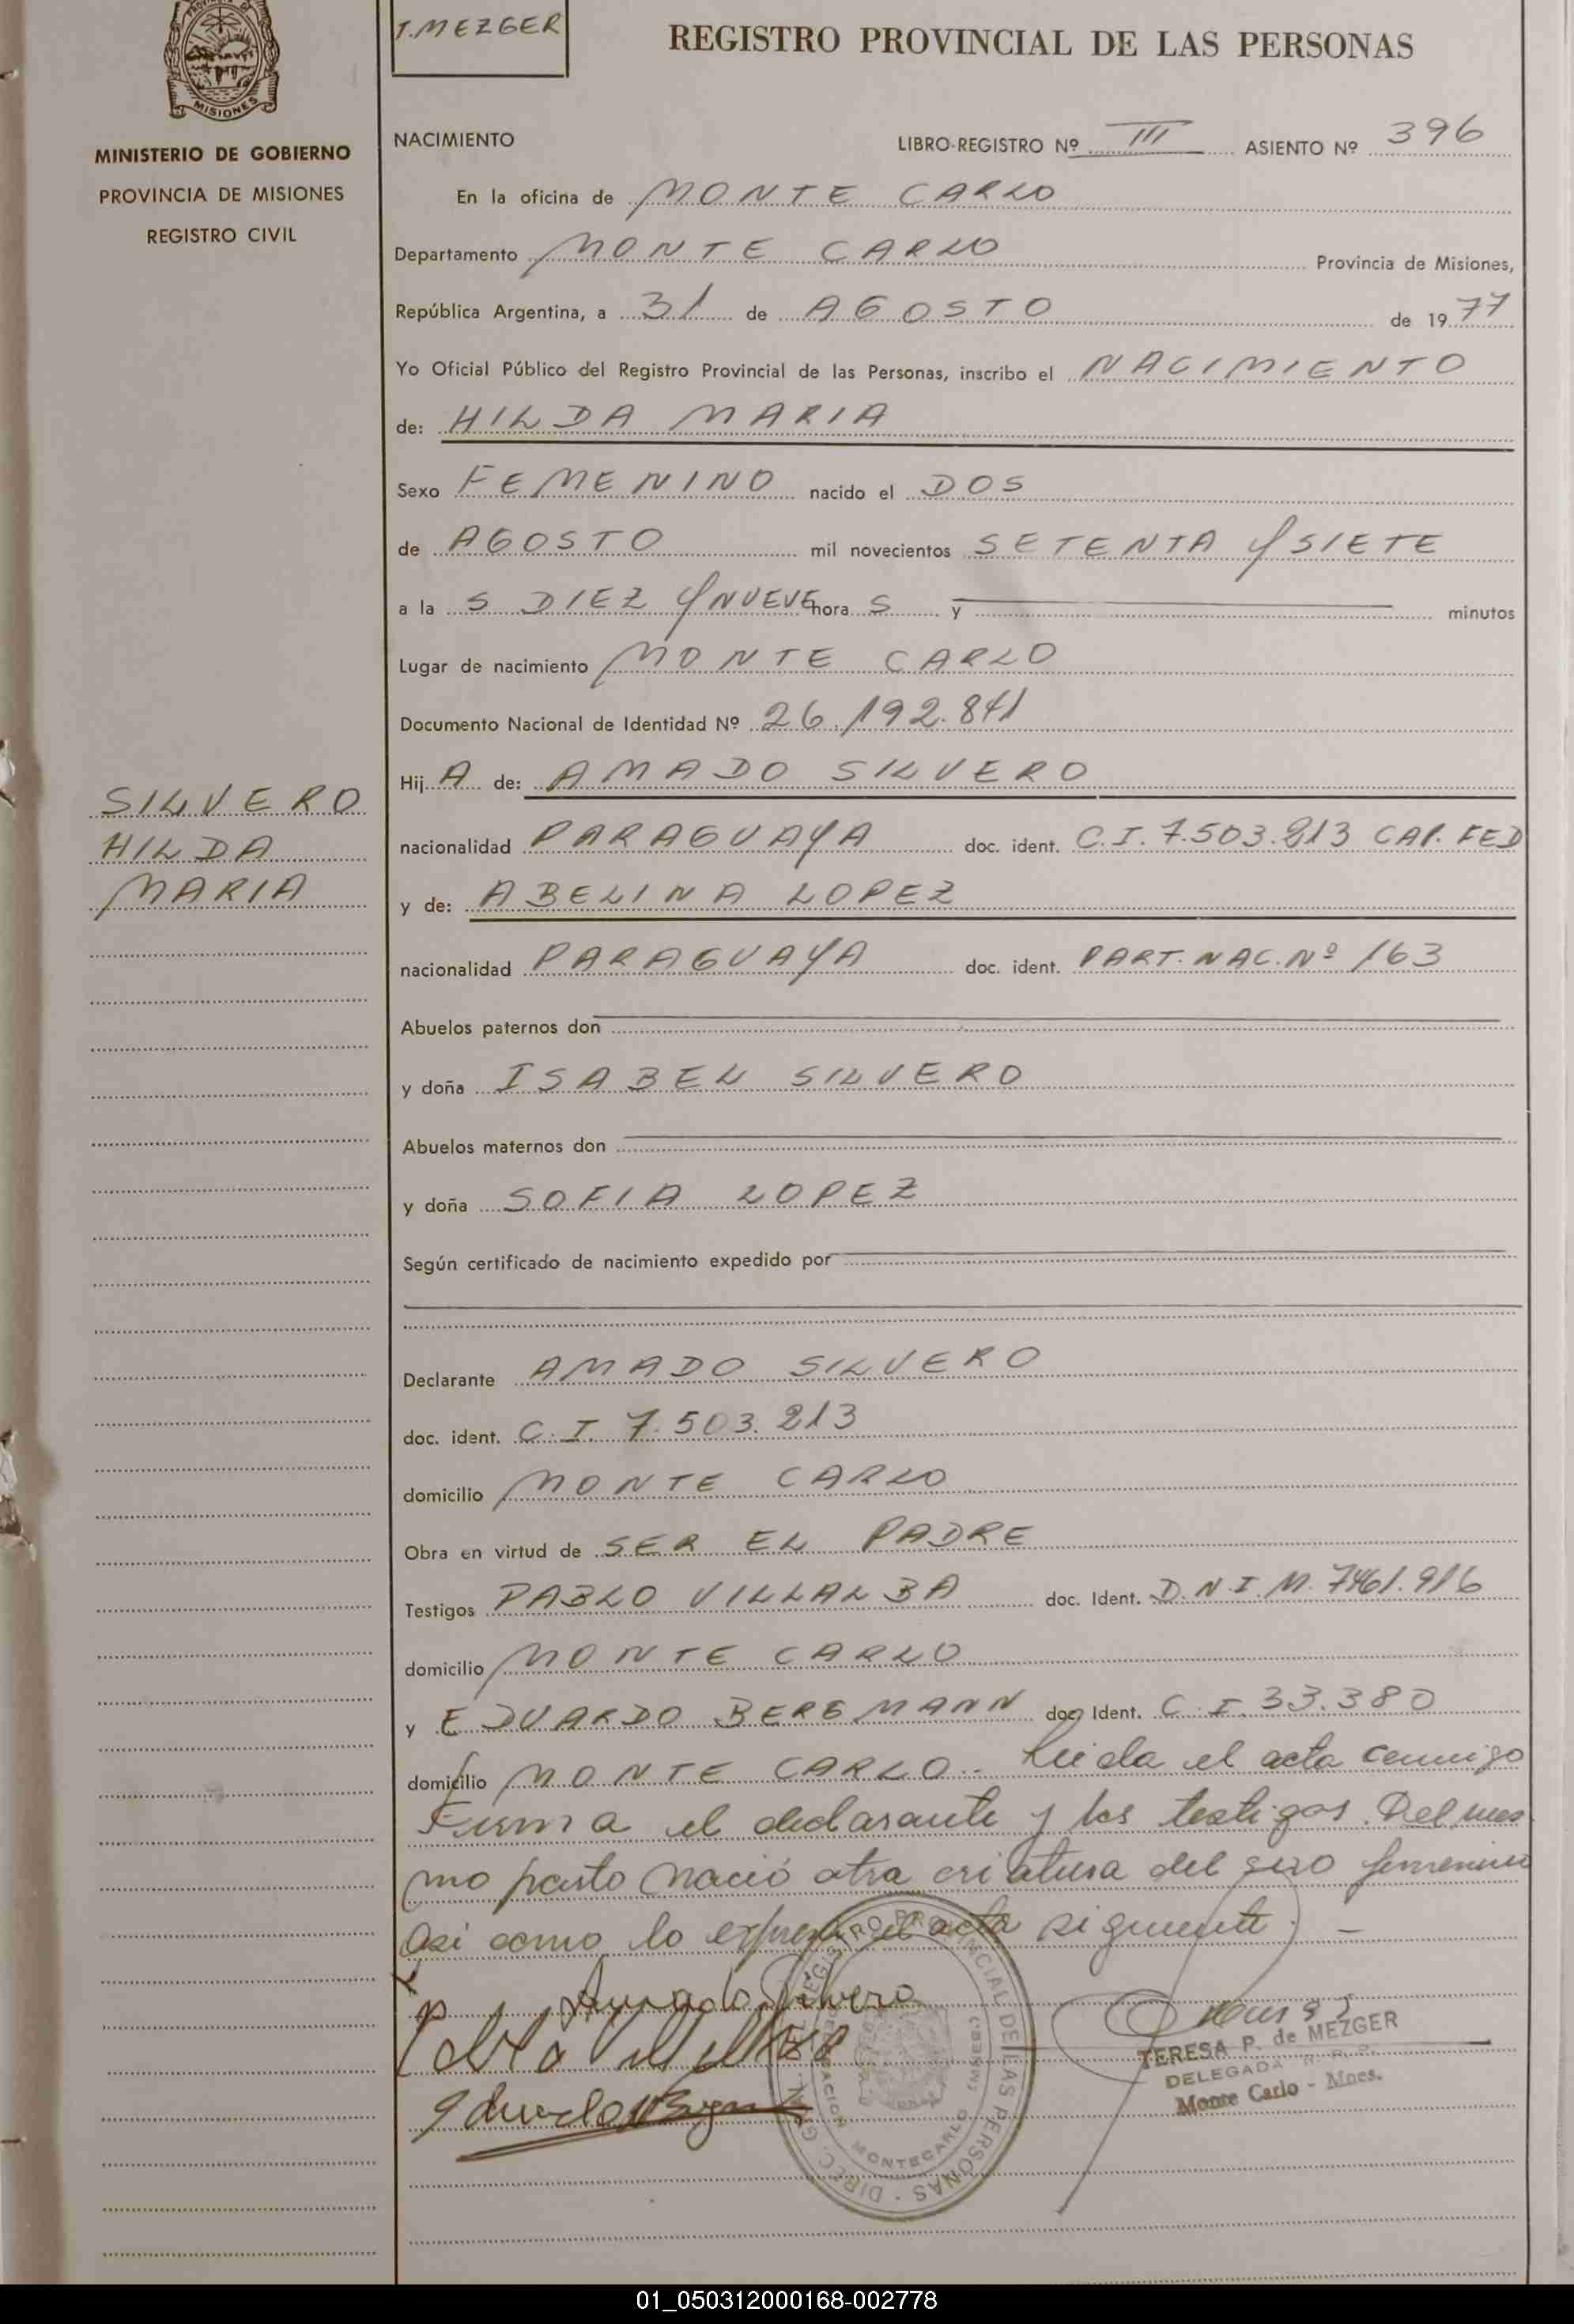 T. MEZGER
REGISTRO PROVINCIAL DE LAS PERSONAS
MISIONES
MINISTERIO DE GOBIERNO
PROVINCIA DE MISIONES
REGISTRO CIVIL
NACIMIENTO LIBRO-REGISTRO Nº III ASIENTO Nº 396
En la oficina de MONTE CARLO
Departamento MONTE CARLO Provincia de Misiones,
República Argentina, a 31 de AGOSTO de 1977
Yo Oficial Público del Registro Provincial de las Personas, inscribo el NACIMIENTO
de: HILDA MARIA
Sexo FEMENINO nacido el DOS
de AGOSTO mil novecientos SETENTA Y SIETE
a la S DIEZ Y NUEVE hora S y minutos
Lugar de nacimiento MONTE CARLO
Documento Nacional de Identidad Nº 26.192.841
Hij A de: AMADO SILVERO
SILVERO
HILDA
MARIA
nacionalidad PARAGUAYA doc. ident. C.I. 7.503.213 CAP. FED
y de: ABELINA LOPEZ
nacionalidad PARAGUAYA doc. ident. PART. NAC. Nº 163
Abuelos paternos don
y doña ISABEL SILVERO
Abuelos maternos don
y doña SOFIA LOPEZ
Según certificado de nacimiento expedido por
Declarante AMADO SILVERO
doc. ident. C.I. 7.503.213
domicilio MONTE CARLO
Obra en virtud de SER EL PADRE
Testigos PABLO VILLALBA doc. Ident. D.N.I.M. 7461.916
domicilio MONTE CARLO
y EDUARDO BERGMANN doc. Ident. C.I. 33.380
domicilio MONTE CARLO.- Leida el acta conmigo
Firma el declarante y los testigos. Del mis
mo parto nació otra criatura del sexo femenino
Asi como lo expresa el acta siguiente. -
Amado Silvero
Pablo Villalba
Eduardo
REGISTRO PROVINCIAL DE LAS PERSONAS - DIREC. GRAL.
MONTECARLO
TERESA P. de MEZGER
DELEGADA R. P. P.
Monte Carlo - Mnes.
01_050312000168-002778